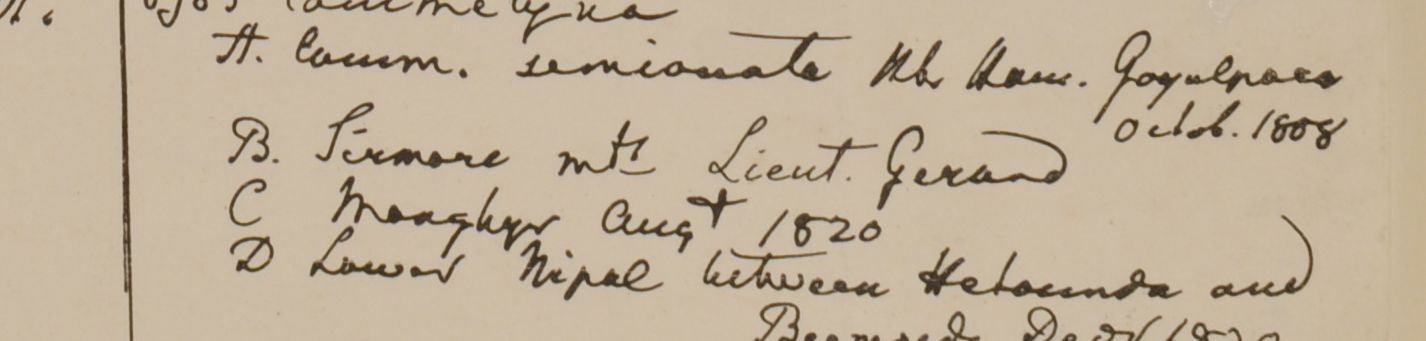 A. Comm. semionata Hb Ham. Goyalpara
Octob. 1808
B. Sirmore mts Lieut. Gerard
C Monghyr Augt 1820
D Lower Nipal between Hetounda and